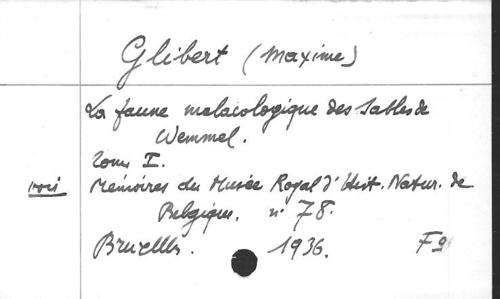 Glibert (Maxime)
La faune malacologique des Sables de
Wemmel.
Tome I.
voir Mémoires du Musée Royal d'Hist. Natur. de
Belgique. n° 78.
Bruxelles. 1936. F9